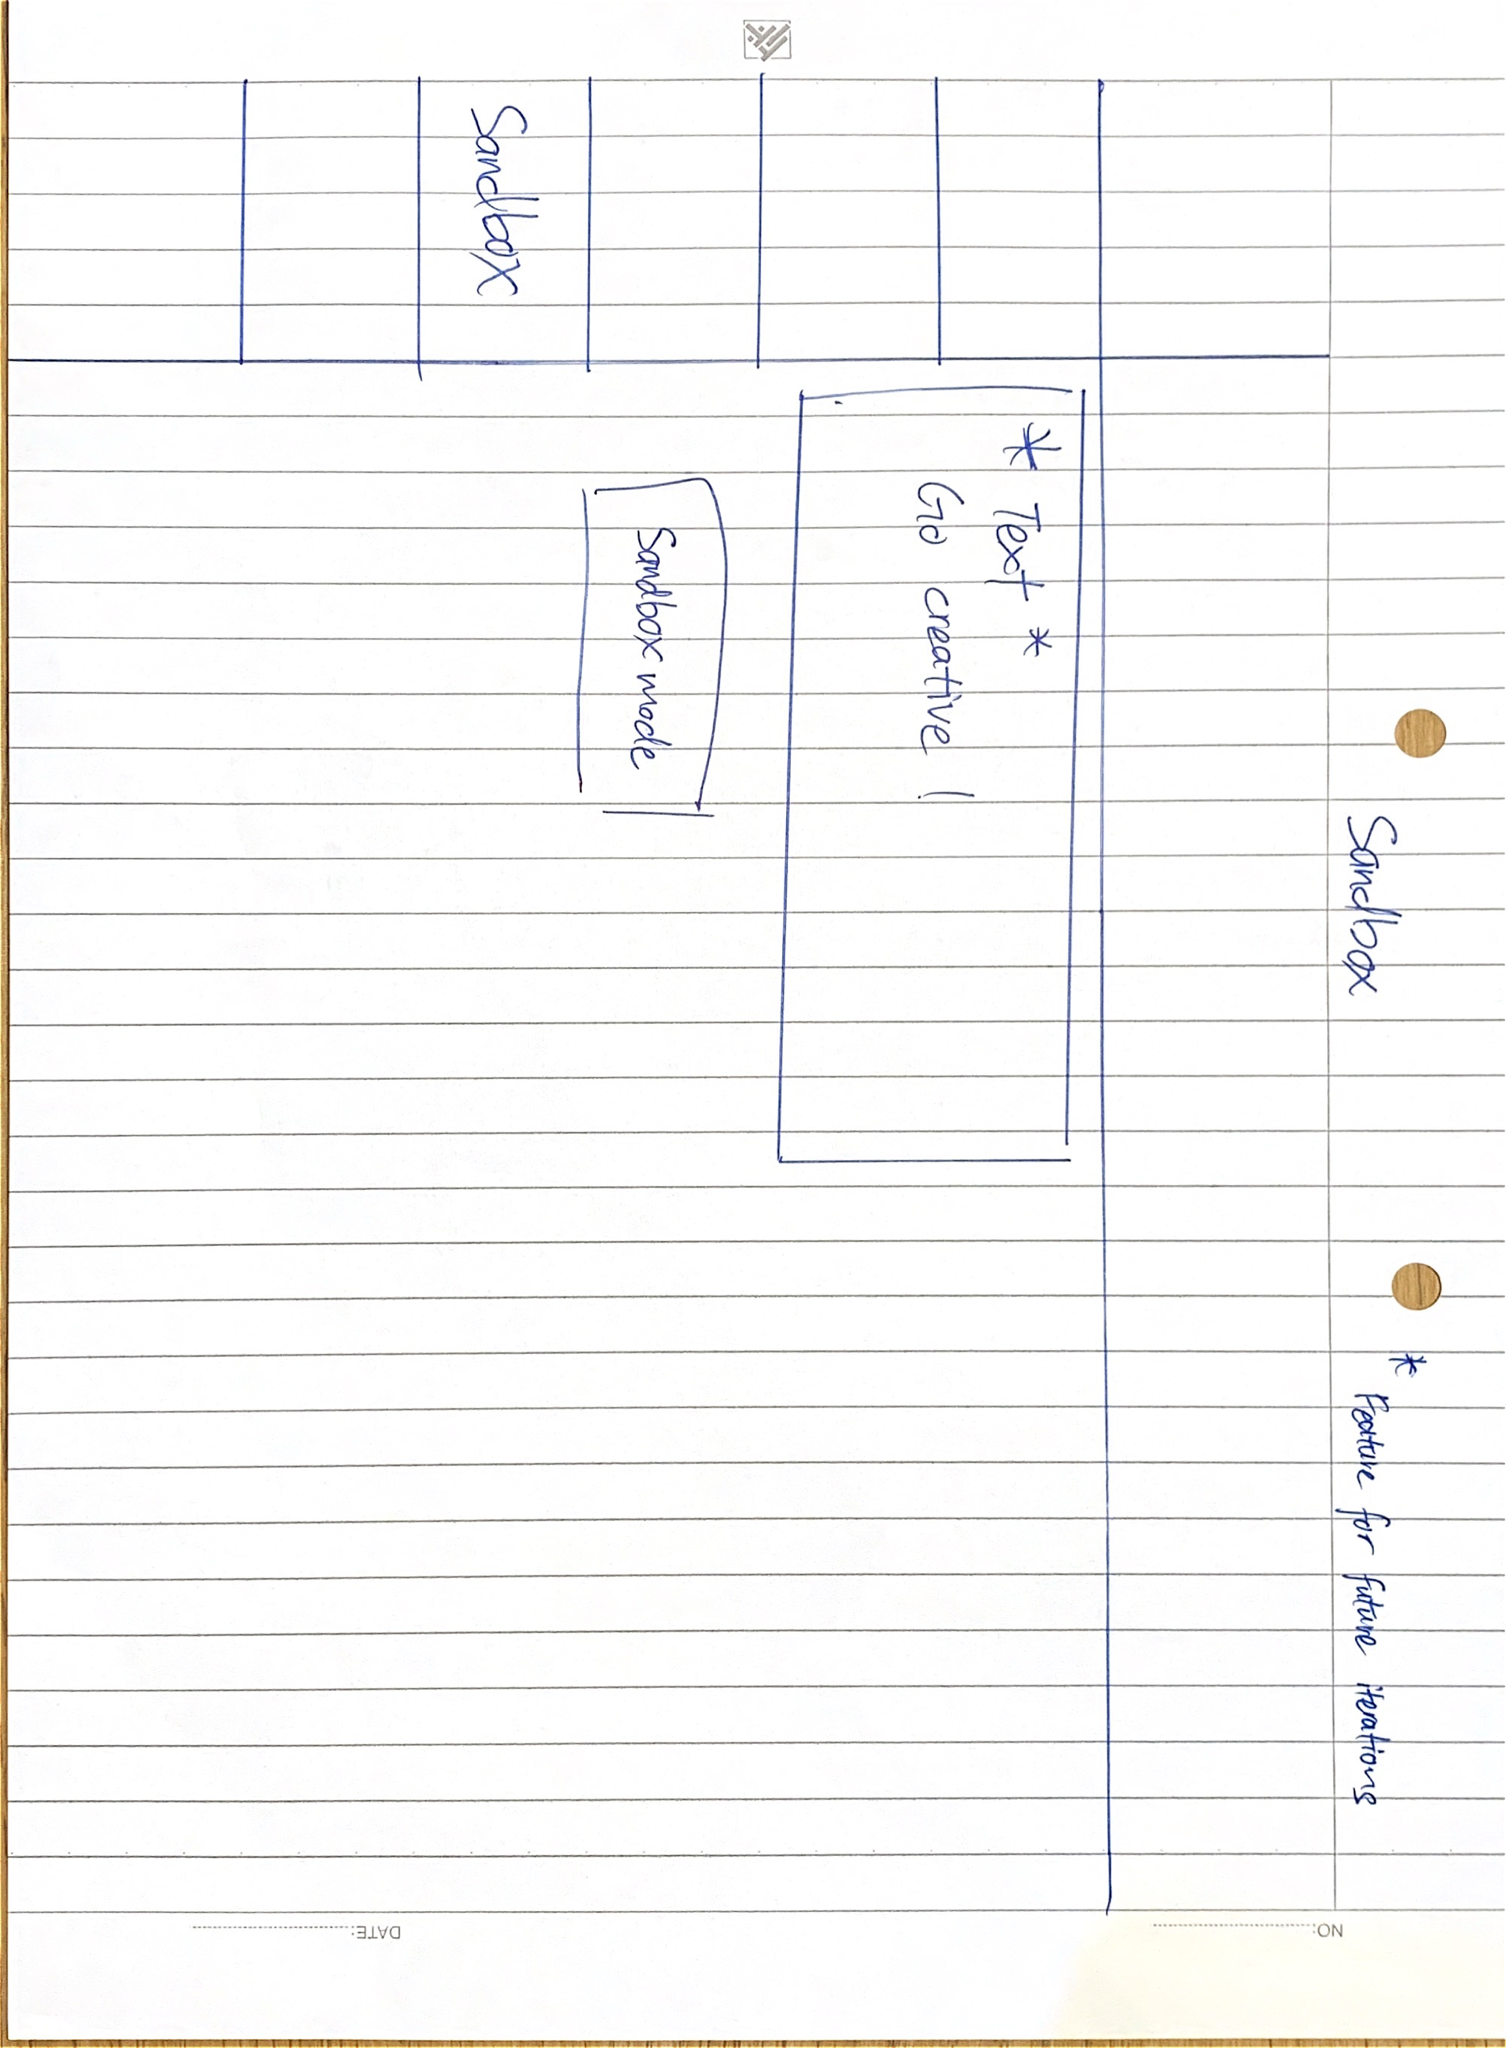 Sandbox
* Feature for future iterations
Sandbox
* Text *
Go creative !
Sandbox mode
NO:
DATE: